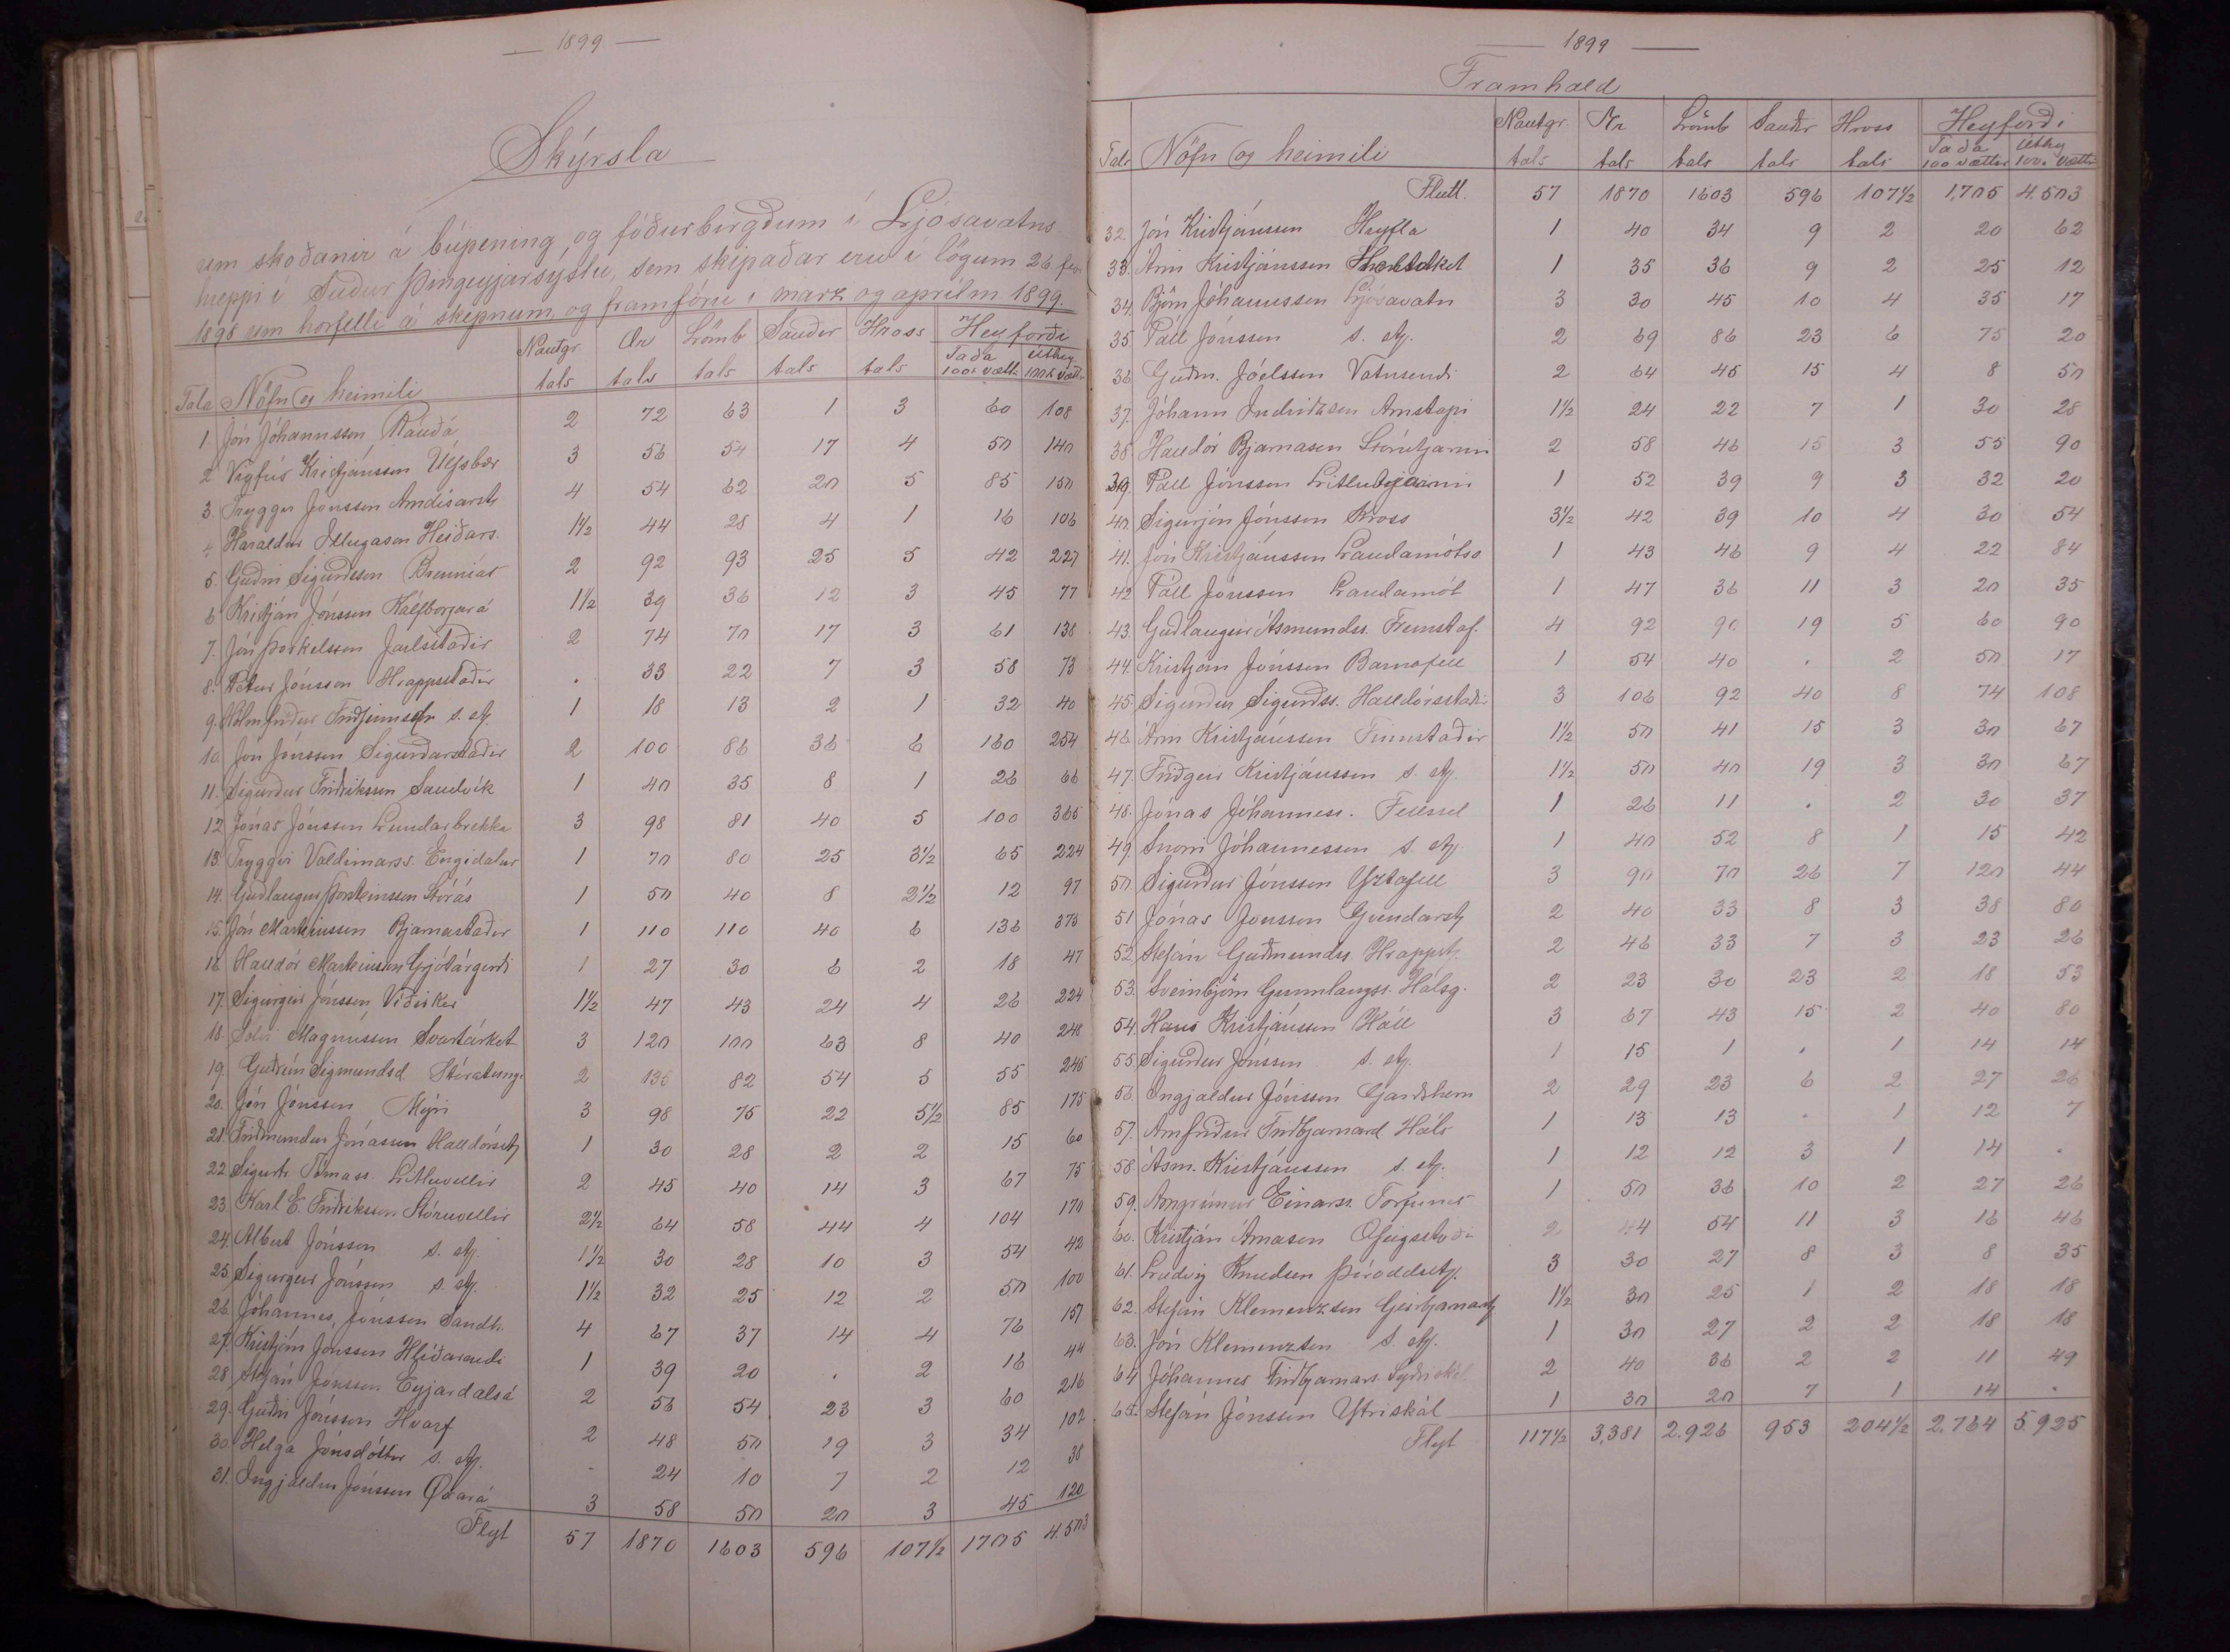 1899
Skýrsla
um skoðanir á búpening, og fóðurbirgðum í Ljósavatns
hreppi í Suður Þingeyjarsýslu, sem skipaðar eru í lögum 26. fe
1898 um horfelli á skepnum, og framfóru í marz og apríl m 1899.
Tala Nöfn og heimili Nautgr. tals Ær tals Lömb tals Sauðir tals Hross tals Heyforði Taða 100k vætt. Úthey 100k vætt
1. Jón Jóhannsson Rauðá 2 72 63 1 3 60 108
2 Vigfús Kristjánsson Úlfsbær 3 56 54 17 4 50 140
3. Tryggvi Jónsson Arndísarst 4 54 62 20 5 85 150
4 Haraldur Illugason Heiðars. 1½ 44 28 4 1 16 106
5. Guðni Sigurdsson Brenniás 2 92 93 25 5 42 227
6 Kristján Jónsson Kálfborgará 1½ 39 36 12 3 45 77
7. Jón Þorkelsson Jarlstaðir 2 74 70 17 3 61 138
8. Pétur Jónsson Hrappstaðir . 33 22 7 3 58 73
9. Hólmfríður s. st. 1 18 13 2 1 32 40
10. Jón Jónsson Sigurðarstaðir 2 100 86 36 6 160 254
11. Sigurður Friðriksson Sandvík 1 40 35 8 1 26 66
12 Jónas Jónsson Lundarbrekka 3 98 81 40 5 100 365
13. Tryggvi Valdimarss. Engidalur 1 70 80 25 3½ 65 224
14. Guðlaugur Þorsteinsson Stórás 1 50 40 8 2½ 12 97
15. Jón Marteinsson Bjarnastaðir 1 110 110 40 6 136 375
16. Halldór Marteinsson Grjótárgerði 1 27 30 6 2 18 47
17. Sigurgeir Jónsson, Víðirker 1½ 47 43 24 4 26 224
18. Magnússon Svartárkot 3 120 100 63 8 40 248
19. Guðrún Sigmundsd. Stóratunga 2 135 82 54 5 55 246
20. Jón Jónsson Mýri 3 98 75 22 5½ 85 175
21. Friðmundur Jónasson Halldórsst 1 30 28 2 2 15 60
22 Sigurtr. Tómass. Litluvellir 2 45 40 14 3 67 75
23. Karl E. Friðriksson Stóruvellir 2½ 64 58 44 4 104 170
24. Albert Jónsson s. st. 1½ 30 28 10 3 54 42
25. Sigurgeir Jónsson s. st. 1½ 32 25 12 2 50 100
26. Jóhannes, Jónsson Sandh. 4 67 37 14 4 76 157
27. Kristján Jónsson Hlíðarendi 1 39 20 . 2 16 44
28. Stefán Jónsson Eyjardalsá 2 56 54 23 3 60 216
29. Guðni Jónsson Hvarf 2 48 50 19 3 34 102
30. Helga Jónsdóttir s. st. - 24 10 7 2 12 38
31. Ingjaldur Jónsson Öxará 3 58 50 20 3 45 120
Flyt 57 1870 1603 596 107½ 1705 4.503
1899
Framhald
Tals Nöfn og heimili Nautgr. tals Ær tals Lömb tals Sauðir tals Hross tals Heyforði Taða 100 vættir Úthey 100. vætti
Flutt. 57 1870 1603 596 107½ 1,705 4.503
32. Jón Kristjánsson Hryfla 1 40 34 9 2 20 62
33. Árni Kristjánsson 1 35 36 9 2 25 12
34. Björn Jóhannsson Ljósavatn 3 30 45 10 4 35 17
35 Páll Jónsson s. st. 2 69 86 23 6 75 20
36 Guðm. Jóelsson Vatnsendi 2 64 45 15 4 8 50
37. Jóhann Indriðason Arnstapi 1½ 24 22 7 1 30 28
38. Halldór Bjarnason Stórutjarnir 2 58 46 15 3 55 90
39. Páll Jónsson Litlutjarnir 1 52 39 9 3 32 20
40. Sigurjón Jónsson Kross 3½ 42 39 10 4 30 54
41. Jón Kristjánsson Landamótss. 1 43 46 9 4 22 84
42 Páll Jónsson Landamót 1 47 36 11 3 20 35
43. Guðlaugur Ásmundss. Fremstaf. 4 92 90 19 5 60 90
44. Kristján Jónsson Barnafell 1 54 40 . 2 50 17
45. Sigurður Sigurðss. Halldórsstaðir 3 106 92 40 8 74 108
46. Árni Kristjánsson Finnstaðir 1½ 50 41 15 3 30 67
47. Friðgeir Kristjánsson s. st. 1½ 50 40 19 3 30 67
48. Jónas Jóhanness. Fellssel 1 26 11 . 2 30 37
49. Snorri Jóhannesson s. st. 1 40 52 8 1 15 42
50 Sigurður Jónsson Yztafell 3 90 70 26 7 120 44
51 Jónas Jónsson 2 40 33 8 3 38 80
52 Stefán Guðmundss. Hrappst. 2 46 33 7 3 23 26
53. Sveinbjörn Gunnlaugss. Hálsg. 2 23 30 23 2 18 53
54. Hans Kristjánsson Háll 3 67 43 15 2 40 80
55. Sigurður Jónsson s. st. 1 15 1 . 1 14 14
56. Ingjaldur Jónsson Garðshorn 2 29 23 6 2 27 26
57. Arnfríður Friðbjarnard. Háls 1 13 13 . 1 12 7
58. Ásm. Kristjánsson s. st. 1 12 12 3 1 14 .
59. Arngrímur Einarss. Torfunes 1 50 36 10 2 27 26
60. Kristján Árnason Ófeigsstaðir 2 44 54 11 3 16 46
61. Lúdvig Knudsen Þóroddst. 3 30 27 8 3 8 35
62. Stefán Klemenzson Geirbjarnarst. 1½ 30 25 1 2 18 18
63. Jón Klemenzson s. st. 1 30 27 2 2 18 18
64 Jóhannes Friðbjarnars. Syðriskál 2 40 36 2 2 11 49
65. Stefán Jónsson Ytriskál 1 30 20 7 1 14 .
Flyt 117½ 3,381 2.926 953 204½ 2.764 5.925